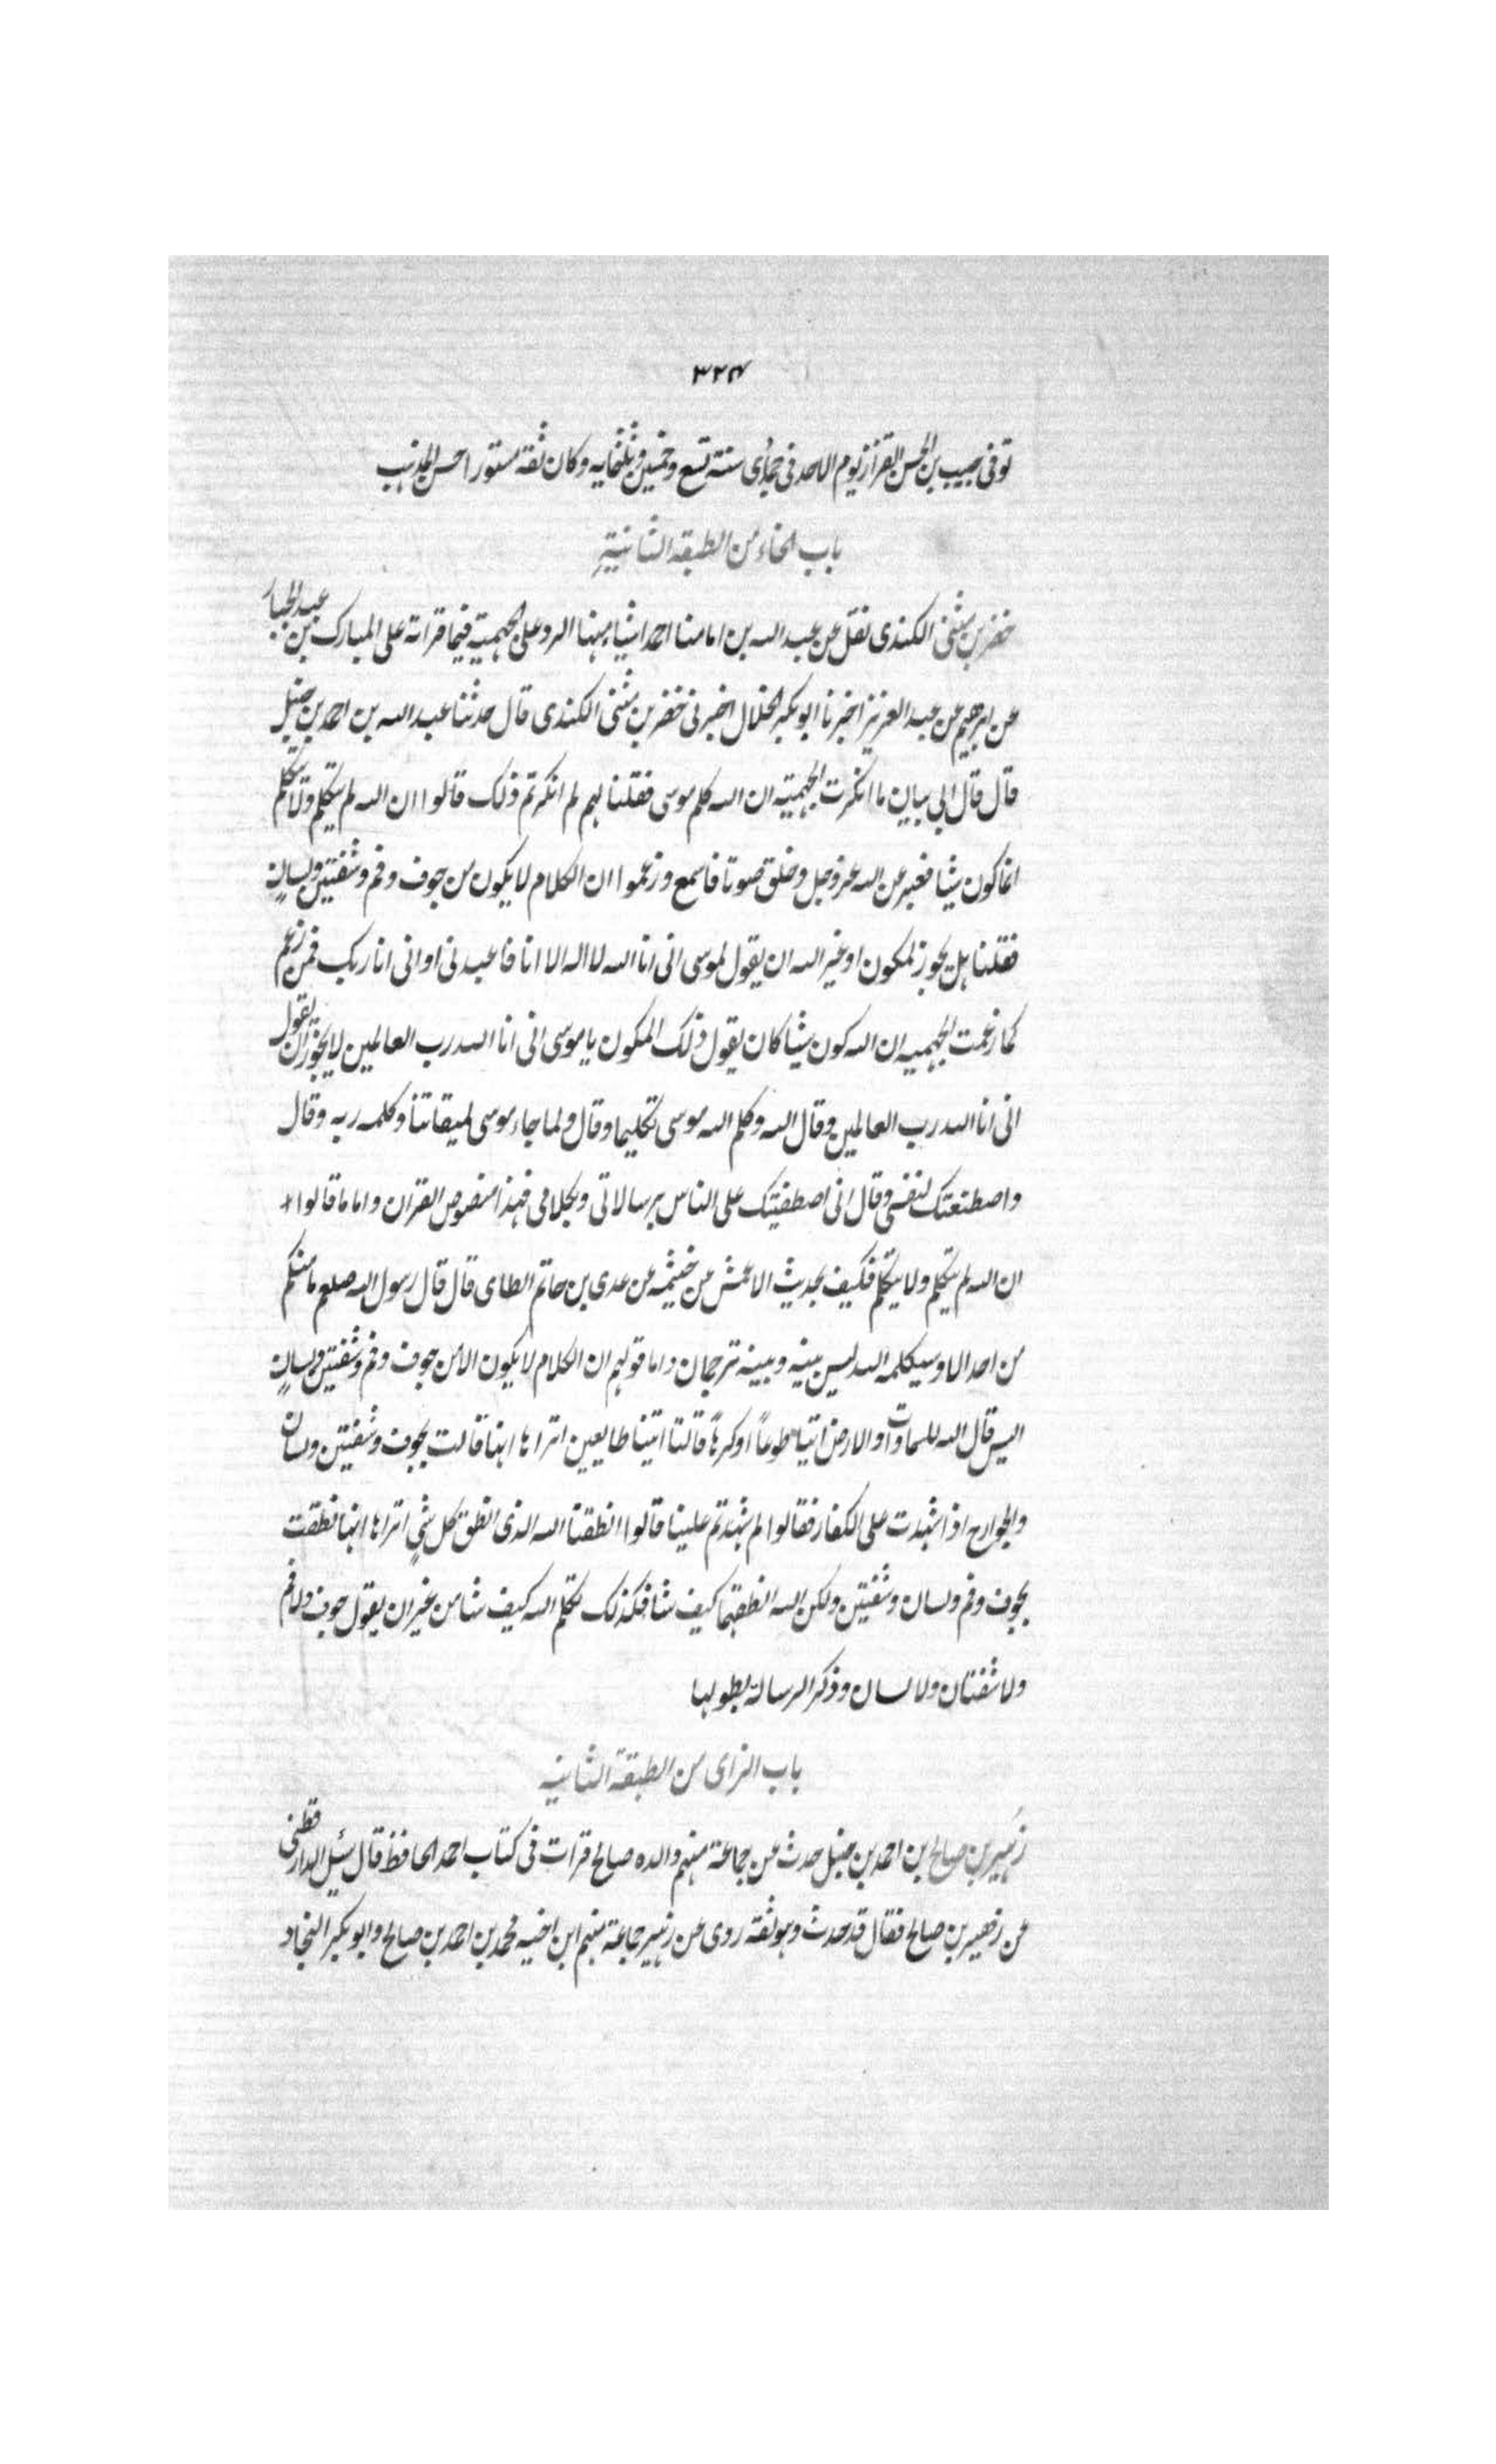 ٣٢٤
توفى حبيب بن الحسن القزاز يوم الاحد فى جمادى سنة تسع وخمسين وثلثمايه وكان ثقة مستورا حسن المذهب
باب الخاء من الطبقه الثانية
خضر بن مثنى الكندى نقل عن عبد الله بن امامنا احمد اشياء منها الرد على الجهمية فيما قراته على المبارك بن عبد الجبار
عن ابرهيم عن عبد العزيز اخبرنا ابو بكر الخلال اخبرنى خضر بن مثنى الكندى قال حدثنا عبد الله بن احمد بن حنبل
قال قال ابى بيان ما انكرت الجهمية ان الله كلم موسى فقلنا لهم لم انكرتم ذلك قالوا ان الله لم يتكلم ولا يتكلم
انما كون شيئا فعبر عن الله عز وجل وخلق صوتا فاسمع وزعموا ان الكلام لا يكون من جوف وفم وشفتين ولسان
فقلنا هل يجوز لمكون او غير الله ان يقول لموسى انى انا الله لا اله الا انا فاعبدنى او انى انا ربك فمن زعم
كما زعمت الجهميه ان الله كون شيئا كان يقول ذلك المكون يا موسى انى انا الله رب العالمين لا يجوز ان يقول
انى انا الله رب العالمين وقال الله وكلم الله موسى تكليما وقال ولما جاء موسى لميقاتنا وكلمه ربه وقال
واصطنعتك لنفسى وقال انى اصطفيتك على الناس برسالاتى وبكلامى فهذا منصوص القران واما ما قالوا
ان الله لم يتكلم ولا يتكلم فكيف بحديث الاعمش عن خيثمه عن عدى بن حاتم الطاى قال قال رسول الله صلعم ما منكم
من احد الا وسيكلمه الله ليس بينه وبينه ترجمان واما قولهم ان الكلام لا يكون الا من جوف وفم وشفتين ولسان
اليس قال الله للسماوات والارض ائتيا طوعاً او كرهاً قالتا اتينا طايعين اتراها انها قالت بجوف وشفتين ولسان
والجوارح اذا شهدت على الكفار فقالوا لم شهدتم علينا قالوا انطقنا الله الذى انطق كل شئ اتراها انها نطقت
بجوف وفم ولسان وشفتين ولكن الله انطقها كيف شا فكذلك تكلم الله كيف شا من غير ان يقول جوف ولا فم
ولا شفتان ولا لسان وذكر الرسالة بطولها
باب الزاى من الطبقة الثانيه
زهير بن صالح بن احمد بن حنبل حدث عن جماعة منهم والده صالح قرات فى كتاب احمد الحافظ قال سئل الدارقطنى
عن زهير بن صالح فقال قد حدث وهو ثقة روى عن زهير جماعة منهم ابن اخيه محمد بن احمد بن صالح وابو بكر النجاد